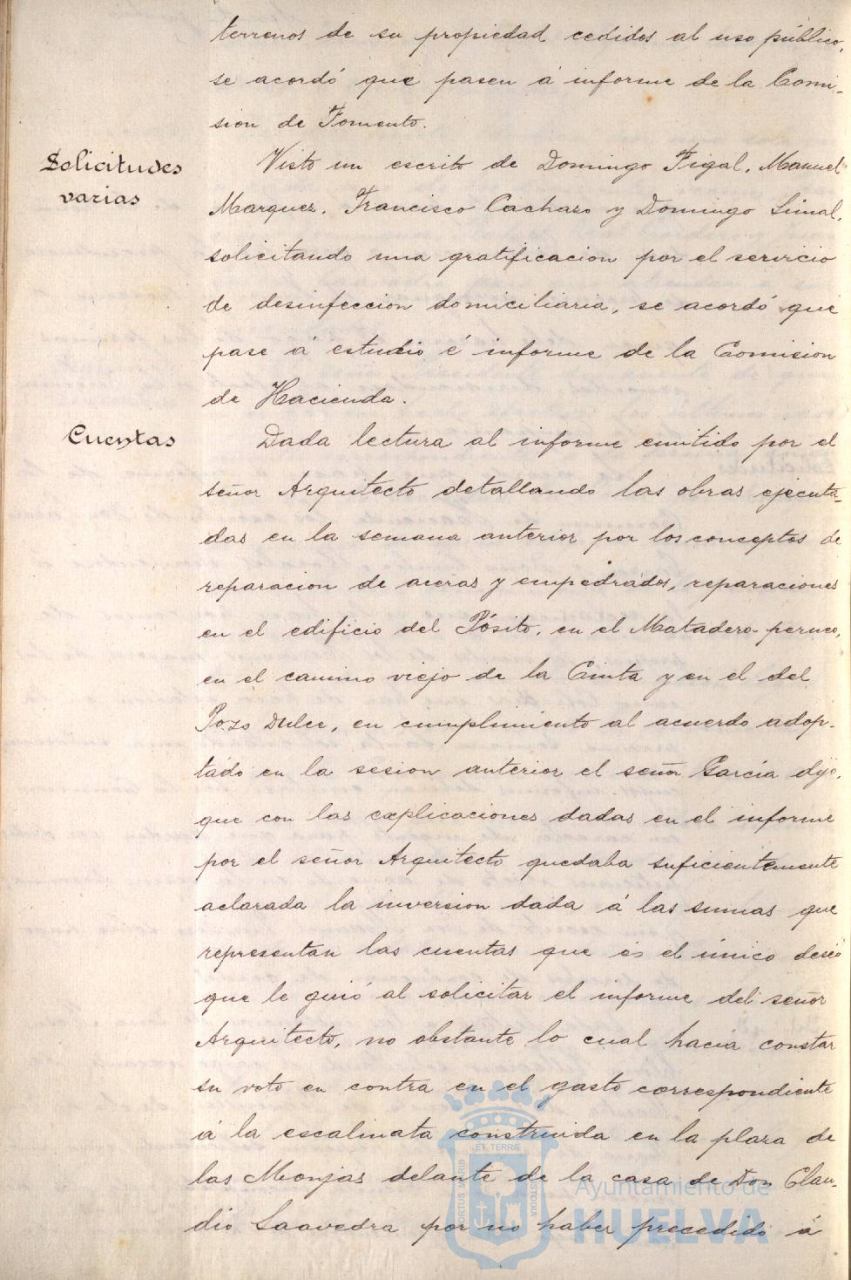 terrenos de su propiedad cedidos al uso público,
se acordó que pasen á informe de la Comi-
sion de Fomento.
Solicitudes
varias
Visto un escrito de Domingo Figal, Manuel
Marquez, Francisco Cacharo y Domingo Simal,
solicitando una gratificacion por el servicio
de desinfeccion domiciliaria, se acordó que
pase á estudio é informe de la Comision
de Hacienda.
Cuentas
Dada lectura al informe emitido por el
señor Arquitecto detallando las obras ejecuta-
das en la semana anterior por los conceptos de
reparacion de aceras y empedrados, reparaciones
en el edificio del Pósito, en el Matadero
en el camino viejo de la Cinta y en el del
Pozo Dulce, en cumplimiento al acuerdo adop-
tado en la sesion anterior el señor García dijo,
que con las explicaciones dadas en el informe
por el señor Arquitecto quedaba suficientemente
aclarada la inversion dada á las sumas que
representan las cuentas que es el único deseo
que le guió al solicitar el informe del señor
Arquitecto, no obstante lo cual hacia constar
su voto en contra en el gasto correspondiente
á la escalinata construida en la plaza de
las Monjas delante de la casa de Don Clau-
dio Saavedra por no haber precedido á
Ayuntamiento de
HUELVA